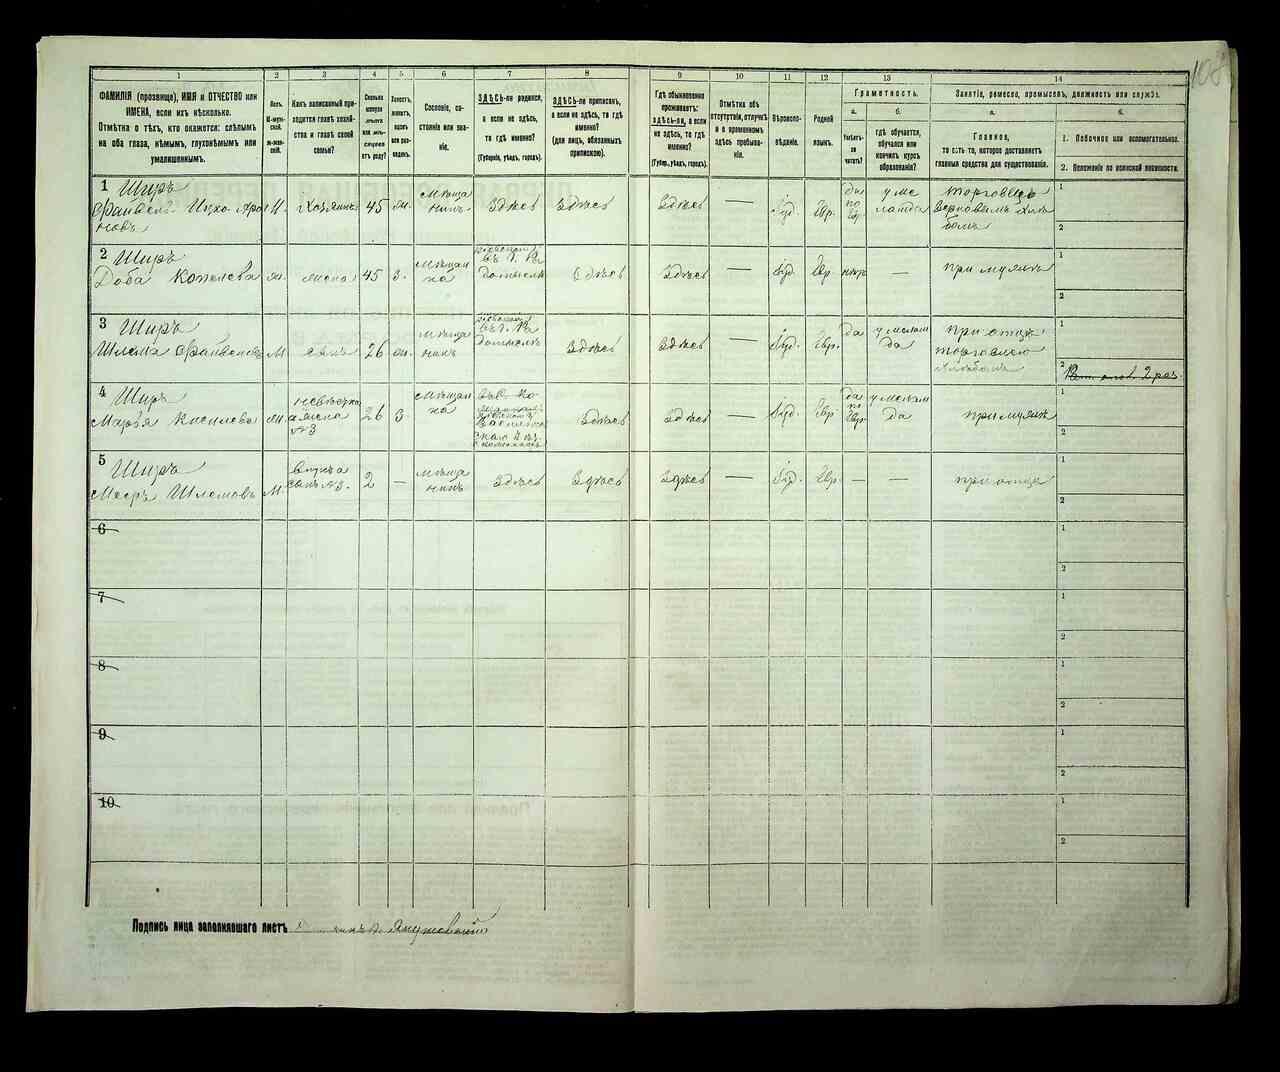 108
1 2 3 4 5 6 7 8 9 10 11 12 13 14
ФАМИЛІЯ (прозвище), ИМЯ и ОТЧЕСТВО или
ИМЕНА, если ихъ нѣсколько.
Отмѣтка о тѣхъ, кто окажется: слѣпымъ
на оба глаза, нѣмымъ, глухонѣмымъ или
умалишеннымъ.
Полъ.
М-мужской.
Ж-женскій.
Какъ записанный при-
ходится главѣ хозяй-
ства и главѣ своей
семьи?
Сколько
минуло
лѣтъ
или мѣ-
сяцевъ
отъ роду?
Холостъ,
женатъ,
вдовъ
или раз-
веденъ.
Сословіе, со-
стояніе или зва-
ніе.
ЗДѢСЬ-ли родился,
а если не здѣсь,
то гдѣ именно?
(Губернія, уѣздъ, городъ).
ЗДѢСЬ-ли приписанъ,
а если не здѣсь, то гдѣ
именно?
(для лицъ, обязанныхъ
припиской).
Гдѣ обыкновенно
проживаетъ:
здѣсь-ли, а если
не здѣсь, то гдѣ
именно?
(Губер., уѣздъ, городъ).
Отмѣтка объ
отсутствіи, отлучкѣ
и о временномъ
здѣсь пребыва-
ніи.
Вѣроиспо-
вѣданіе.
Родной
языкъ.
Грамотность.
а. б.
Умѣетъ-
ли
читать?
гдѣ обучается,
обучался или
кончилъ курсъ
образованія?
Занятіе, ремесло, промыселъ, должность или служба.
а. б.
Главное,
то есть то, которое доставляетъ
главныя средства для существованія.
1. Побочное или вспомогательное.
2. Положеніе по воинской повинности.
1 Ширъ
М. Хозяинъ 45 ж. мѣща
нинъ Здѣсь Здѣсь Здѣсь — Іуд. Евр. да
по
Евр. у ме
ламда торговецъ
зерновымъ хлѣ
бомъ
1
2
2 Ширъ
Доба ж. жена 45 З. мѣщан
ка Здѣсь Здѣсь — Іуд. Евр нѣтъ — при мужѣ
1
2
3 Ширъ
Шлема М. сынъ 26 ж. мѣща
нинъ Здѣсь Здѣсь — Іуд. Евр. да у мелам
да при отцѣ
торговлею
хлѣбомъ
1
2 2 раз.
4 Ширъ
ж. невѣстка
жена
№3 26 З. мѣщан
ка Здѣсь Здѣсь — Іуд. Евр. да
по
Евр. у мелам
да при мужѣ
1
2
5 Ширъ
Шлемовъ М. внукъ
сынъ №3. 2 — мѣща
нинъ Здѣсь Здѣсь Здѣсь — Іуд. Евр. — — при отцѣ
1
2
6
1
2
7
1
2
8
1
2
9
1
2
10
1
2
Подпись лица заполнявшаго листъ